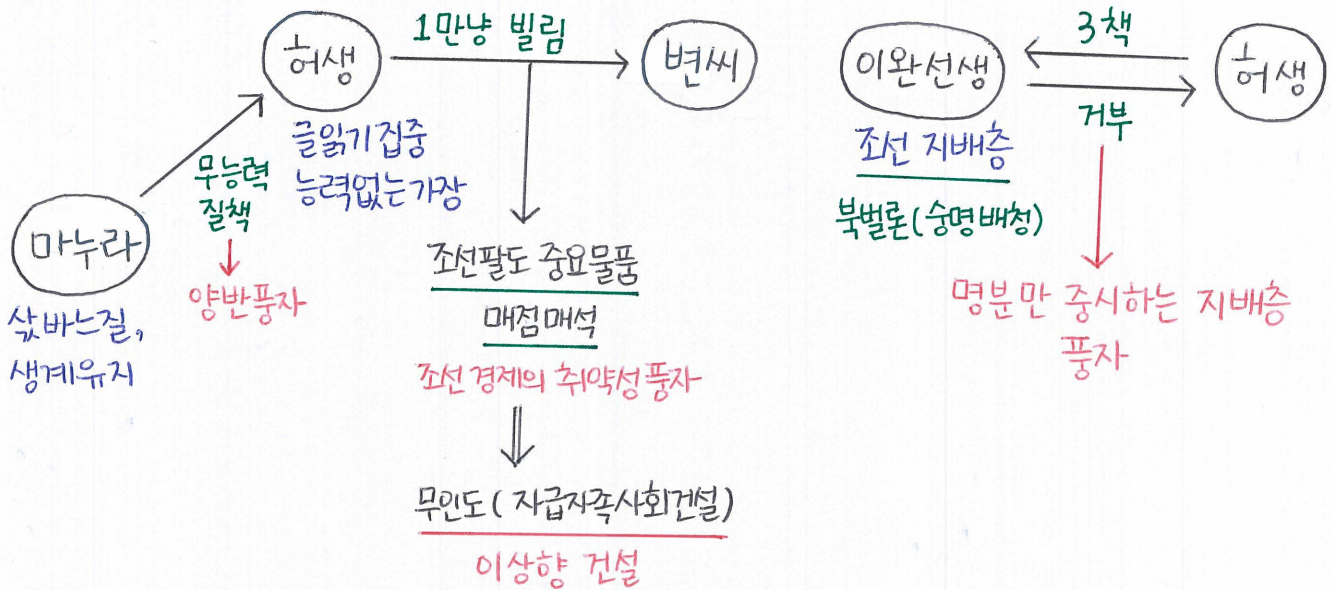 허생
1만냥 빌림
변씨
글읽기 집중
능력없는가장
무능력
질책
양반풍자
마누라
삯바느질,
생계유지
조선팔도 중요물품
매점매석
조선 경제의 취약성풍자
무인도 (자급자족사회건설)
이상향 건설
이완선생
3책
거부
허생
조선 지배층
북벌론(숭명배청)
명분만 중시하는 지배층
풍자